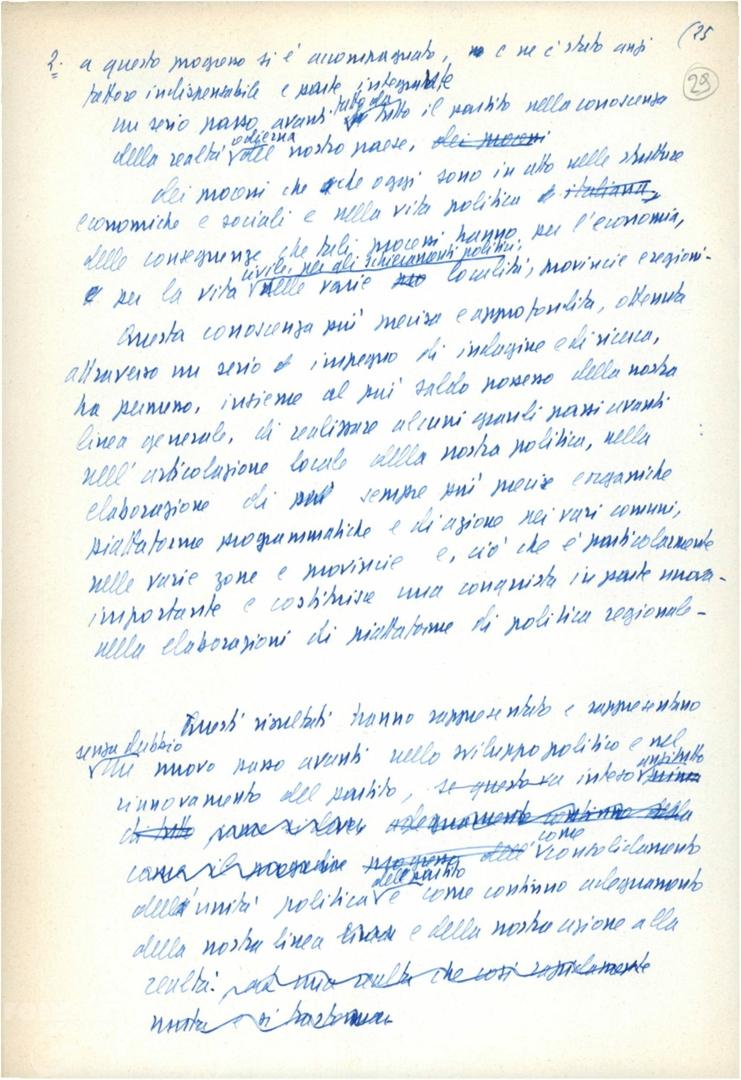 (25
29
2. a questo progresso si è accompagnato, e ne è stato anzi
fattore indispensabile e parte integrante
un serio passo avanti fatto da tutto il partito nella conoscenza
della realtà odierna del nostro paese, dei processi
dei processi che oggi sono in atto nelle strutture
economiche e sociali e nella vita politica italiana,
delle conseguenze che tali processi hanno per l'economia,
per la vita civile, per gli schieramenti politici, nelle varie località, provincie e regioni-
Questa conoscenza più precisa e approfondita, ottenuta
attraverso un serio impegno di indagine e di ricerca,
ha permesso, insieme al più saldo possesso della nostra
linea generale, di realizzare alcuni grandi passi avanti
nell'articolazione locale della nostra politica, nella
elaborazione di sempre più precise e organiche
piattaforme programmatiche e di azione nei vari comuni,
nelle varie zone e provincie e, ciò che è particolarmente
importante e costituisce una conquista in parte nuova-
nella elaborazioni di piattaforme di politica regionale-
Questi risultati hanno rappresentato e rappresentano
senza dubbio
un nuovo passo avanti nello sviluppo politico e nel
rinnovamento del partito, se questo va inteso anzitutto prima
di tutto
come
consolidamento
dell'unità politica del partito e come continuo adeguamento
della nostra linea e della nostra azione alla
realtà. ad una realtà che così rapidamente